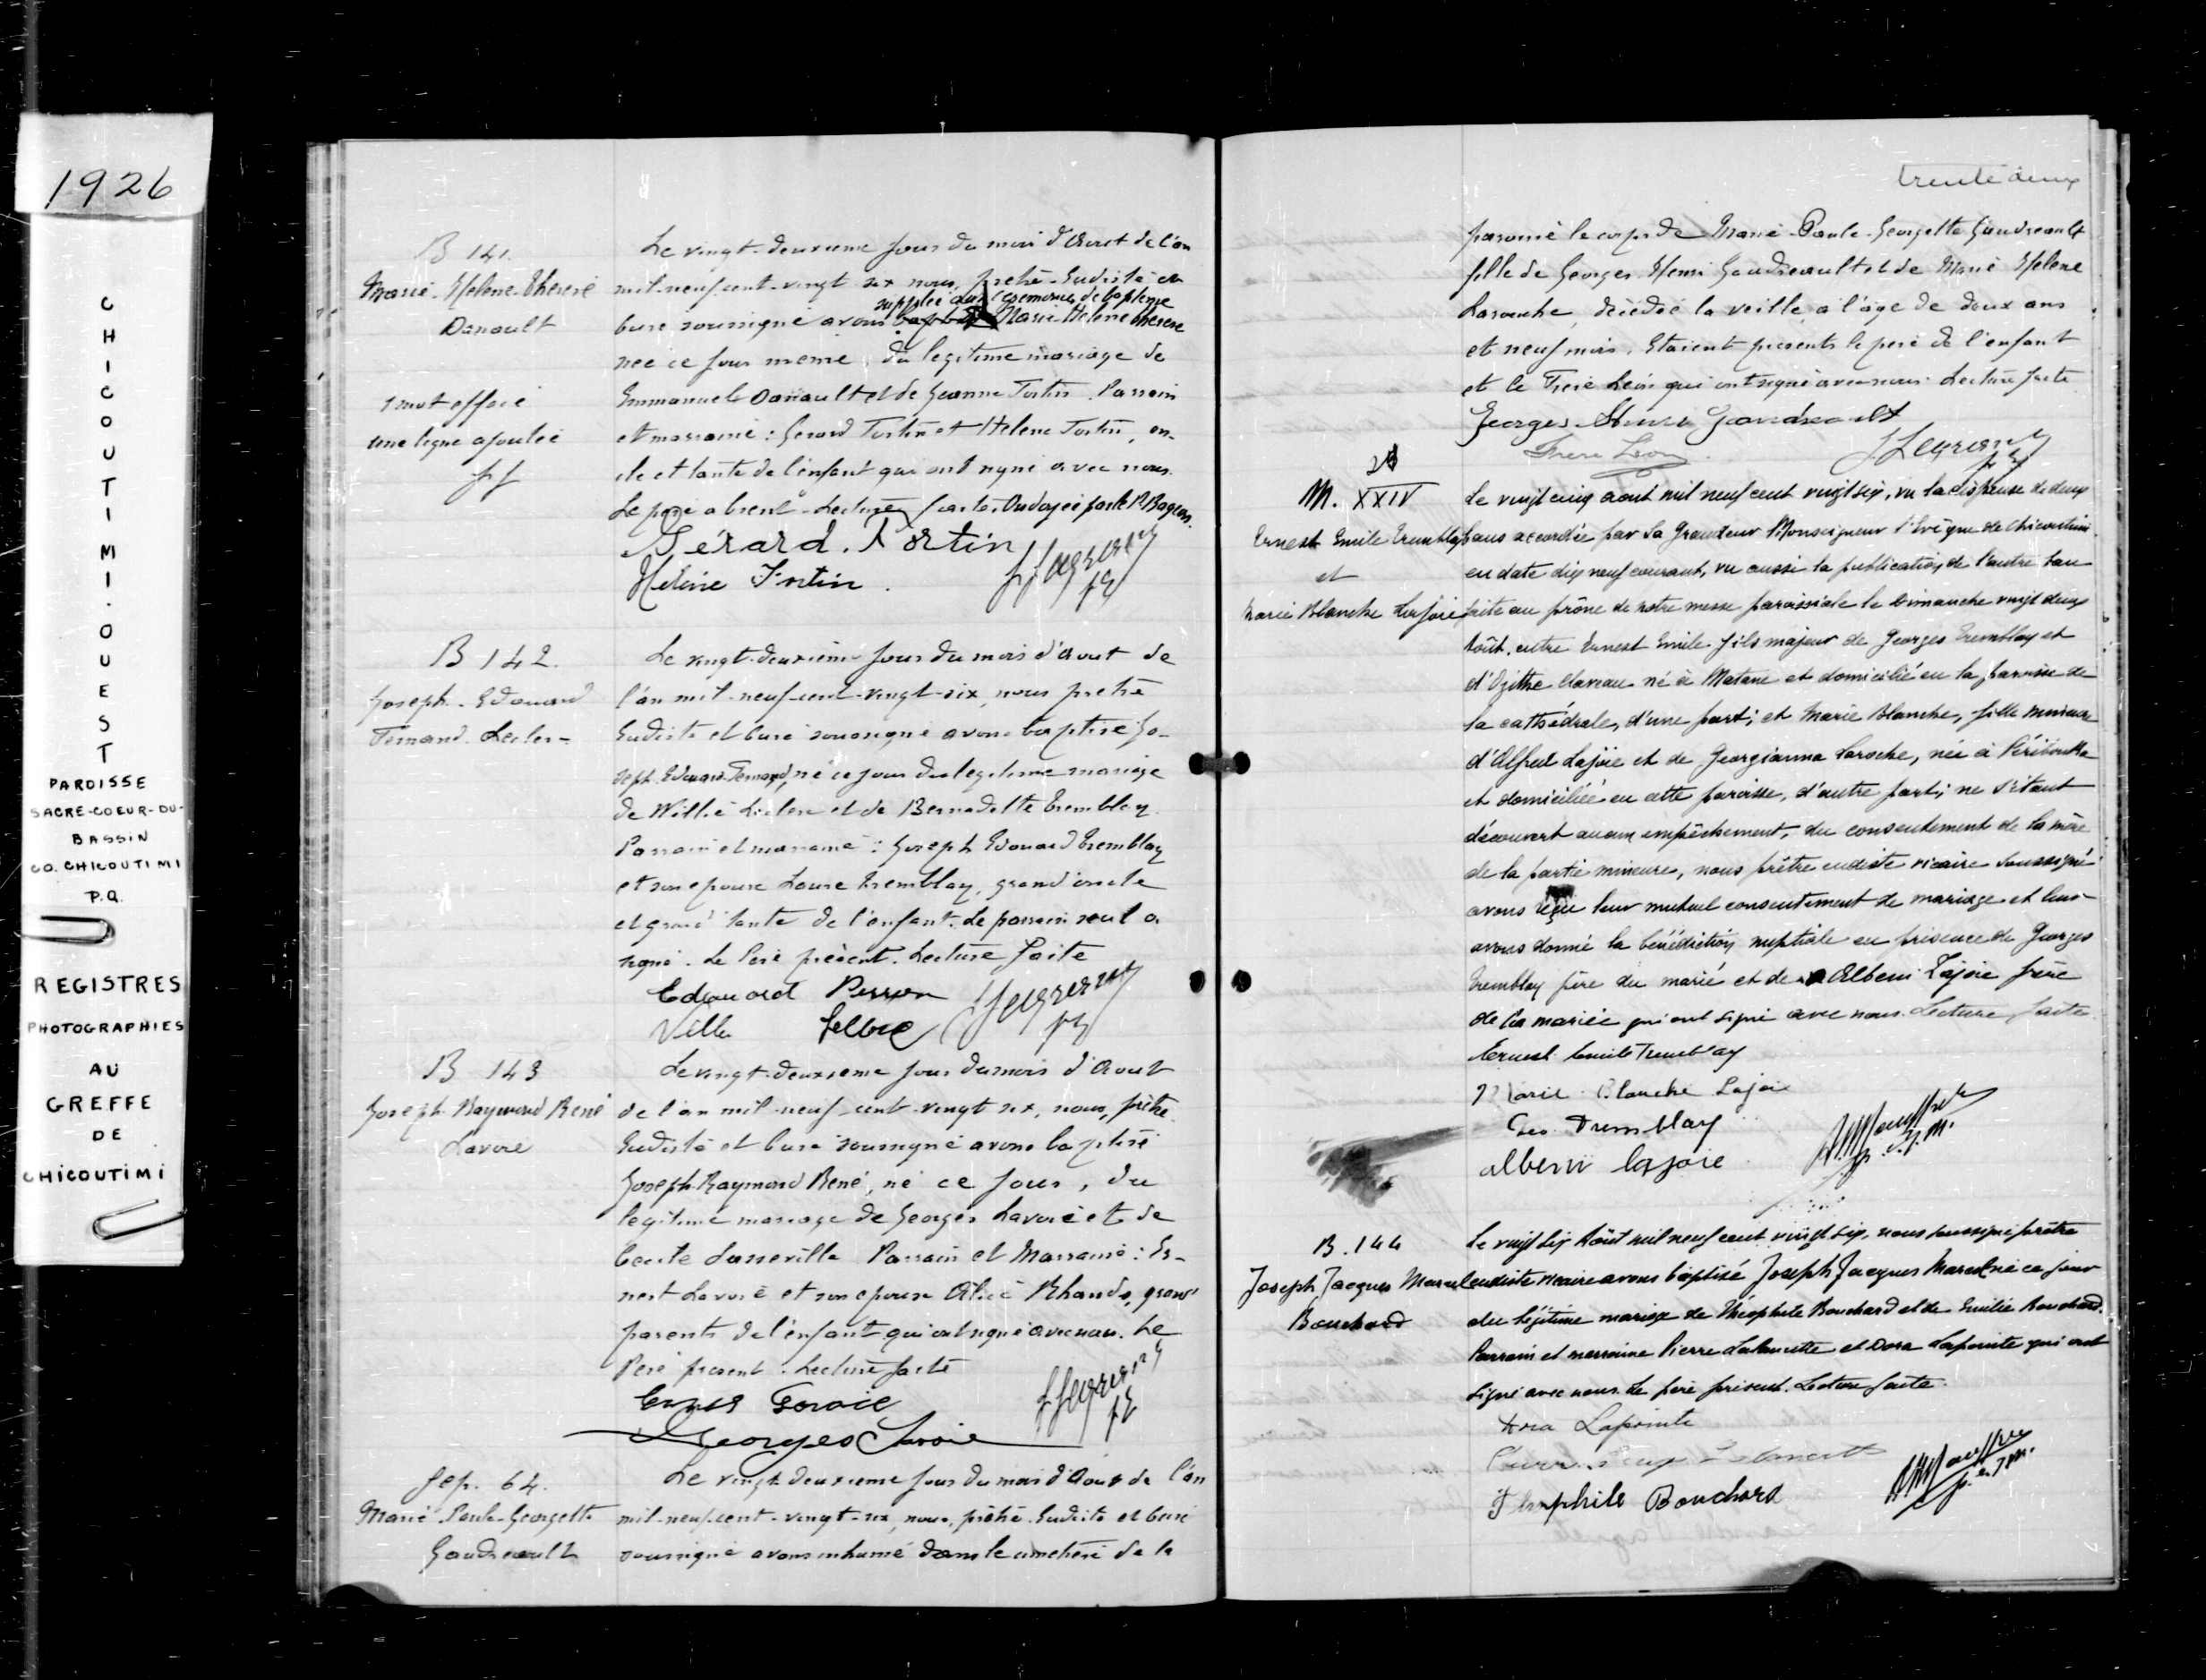 1926
CHICOUTIMI-OUEST
PAROISSE
SACRE-COEUR-DU-
BASSIN
CO. CHICOUTIMI
P.Q.
REGISTRES
PHOTOGRAPHIES
AU
GREFFE
DE
CHICOUTIMI
B 141.
Marie-Helene-Therese
Danault
1 mot effacé
une ligne ajoutée
Le vingt-deuxieme jour du mois d'Aout de l'an
mil-neuf-cent-vingt six nous, prêtre Eudiste et
supplée aux ceremonies de bapteme
Curé soussigné avons Marie-Helene Therese
née ce jour meme, du legitime mariage de
Emmanuel Danault et de Jeanne Fortin. Parrain
et marraine : Gerard Fortin et Helene Fortin, on-
cle et tante de l'enfant qui ont signé avec nous.
Le père absent. Lecture faite. Ondoyée par le
Gérard. Fortin
Hélène Fortin.
B 142.
Joseph-Edouard
Fernand Lecler-
Le vingt-deuxième jour du mois d'Aout de
l'an mil-neuf-cent-vingt-six, nous prêtre
Eudiste et Curé soussigné avons baptisé Jo-
seph-Edouard-Fernand, né ce jour du legitime mariage
de Willie Leclerc et de Bernadette Tremblay.
Parrain et marraine : Joseph Edouard Tremblay
et son epouse Louise Tremblay, grand'oncle
et grand'tante de l'enfant. Le parrain seul a
signé. Le Père présent. Lecture faite
Edouard
B 143
Joseph-Raymond René
Lavoie
Le vingt-deuxieme jour du mois d'Aout
de l'an mil-neuf-cent-vingt six, nous, prêtre
Eudiste et Curé soussigné avons baptisé
Joseph-Raymond René, né ce jour, du
legitime mariage de Georges Lavoie et de
Parrain et Marraine : Er-
nest Lavoie et son epouse grand'
parents de l'enfant qui ont signé avec nous. Le
Père present. Lecture faite
Georges Lavoie
Sep. 64.
Marie-Paule-Georgette
Gaudreault
Le vingt-deuxieme jour du mois d'Aout de l'an
mil-neuf-cent-vingt-six, nous, prêtre Eudiste et Curé
soussigné avons inhumé dans le cimetière de la
trente deux
paroisse le corps de Marie-Paule-Georgette Gaudreault
fille de Georges Henri Gaudreault et de Marie Helene
Larouche, décédée la veille, à l'âge de deux ans
et neuf mois. Etaient présents le père de l'enfant
et le Frère Léon qui ont signé avec nous. Lecture faite
Georges-Henri Gaudreault
Frere Leon
M. XXIV
Ernest Emile Tremblay
et
Marie Blanche Lajoie
Le vingt cinq aout mil neuf cent vingt six, vu la dispense de deux
bans accordée par Sa Grandeur Monseigneur l'Evêque de Chicoutimi
en date dix neuf courant, vu aussi la publication de l'autre ban
faite au prône de notre messe paroissiale le Dimanche vingt deux
Août, entre Ernest Emile fils majeur de Georges Tremblay et
d'Ozithe Claveau né à Matane et domicilié en la paroisse de
la cathédrale, d'une part; et Marie Blanche, fille mineure
d'Alfred Lajoie et de Georgianna Laroche, née à Péribonka
et domiciliée en cette paroisse, d'autre part; ne s'étant
découvert aucun empêchement, du consentement de la mère
de la partie mineure, nous prêtre eudiste vicaire soussigné
avons reçu leur mutuel consentement de mariage et leur
avons donné la bénédiction nuptiale en présence de Georges
Tremblay père du marié et de Alberic Lajoie frère
de la mariée qui ont signé avec nous. Lecture faite.
Ernest Emile Tremblay
Marie-Blanche Lajoie
Geo. Tremblay
B. 144
Joseph Jacques Marcel
Bouchard
Le vingt six Août mil neuf cent vingt six, nous soussigné prêtre
eudiste vicaire avons baptisé Joseph Jacques Marcel né ce jour
du légitime mariage de Théophile Bouchard et de Emilie Bouchard.
Parrain et marraine Pierre Lalancette et Dora Lapointe qui ont
signé avec nous. Le père présent. Lecture faite.
Dora Lapointe
Théophile Bouchard